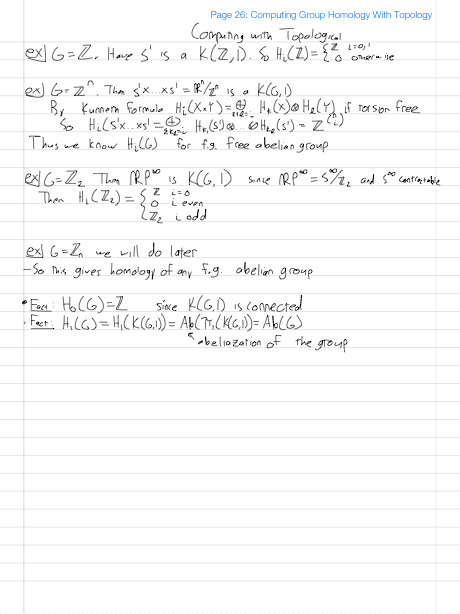 Page 26: Computing Group Homology With Topology
Computing with Topological
ex] G=ℤ. Have S¹ is a K(ℤ,1). So Hᵢ(ℤ)={ℤ i=0,1 0 otherwise
ex] G=ℤⁿ. Then S¹x...xS¹=ℝⁿ/ℤⁿ is a K(G,1)
By Kunneth Formula Hᵢ(X×Y)=⊕ₖ₊ₗ₌ᵢ Hₖ(X)⊗Hₗ(Y) if torsion free
So Hᵢ(S¹x...xS¹)=⊕_{Σkₑ=i} H_{k₁}(S¹)⊗...⊗H_{kₑ}(S¹)=ℤ^{(n i)}
Thus we know Hᵢ(G) for f.g. free abelian group
ex] G=ℤ₂ Then ℝP^∞ is K(G,1) since ℝP^∞=S^∞/ℤ₂ and S^∞ contractable
Then Hᵢ(ℤ₂)={ℤ i=0
0 i even
ℤ₂ i odd
ex] G=ℤₙ we will do later
-So this gives homology of any f.g. abelian group
• Fact: H₀(G)=ℤ since K(G,1) is connected
• Fact: H₁(G)=H₁(K(G,1))=Ab(π₁(K(G,1))=Ab(G)
abeliazation of the group